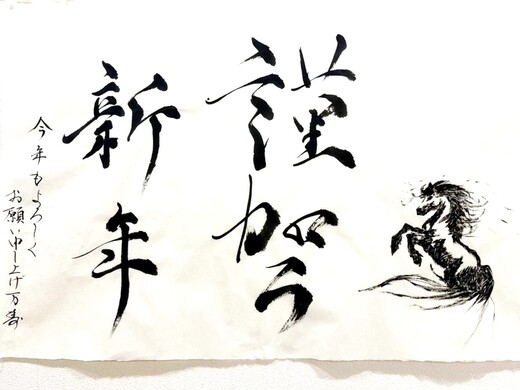 謹賀
新年
今年もよろしく
お願い申し上げ万寿